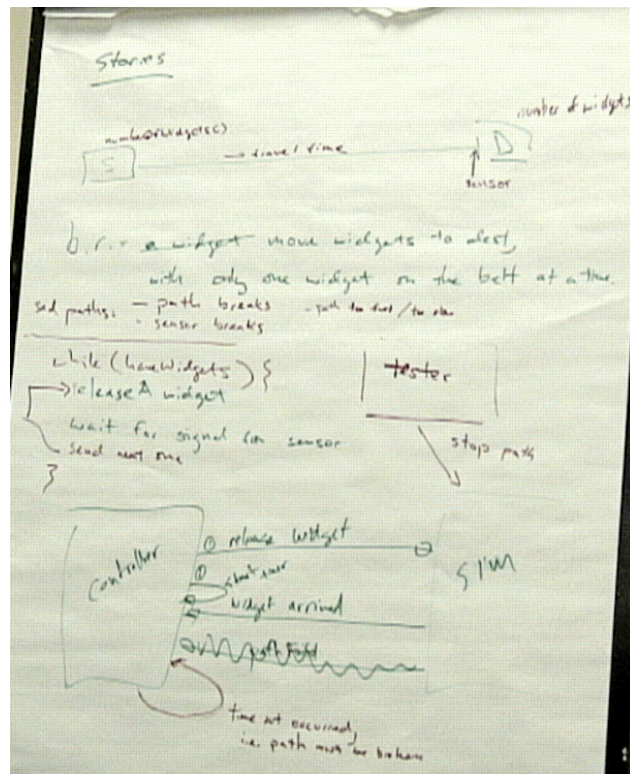 Stories
number of widgets
numberWidgets()
S
→ travel time
D
sensor
b.r. - a widget move widgets to dest,
with only one widget on the belt at a time.
sad paths: - path breaks - path too fast / too slow
- sensor breaks
while (haveWidgets) {
release A widget
wait for signal from sensor
send next one
}
tester
stop path
Controller
SIM
① release widget
① start timer
widget arrived
path failed
time out occurred,
i.e. path must be broken